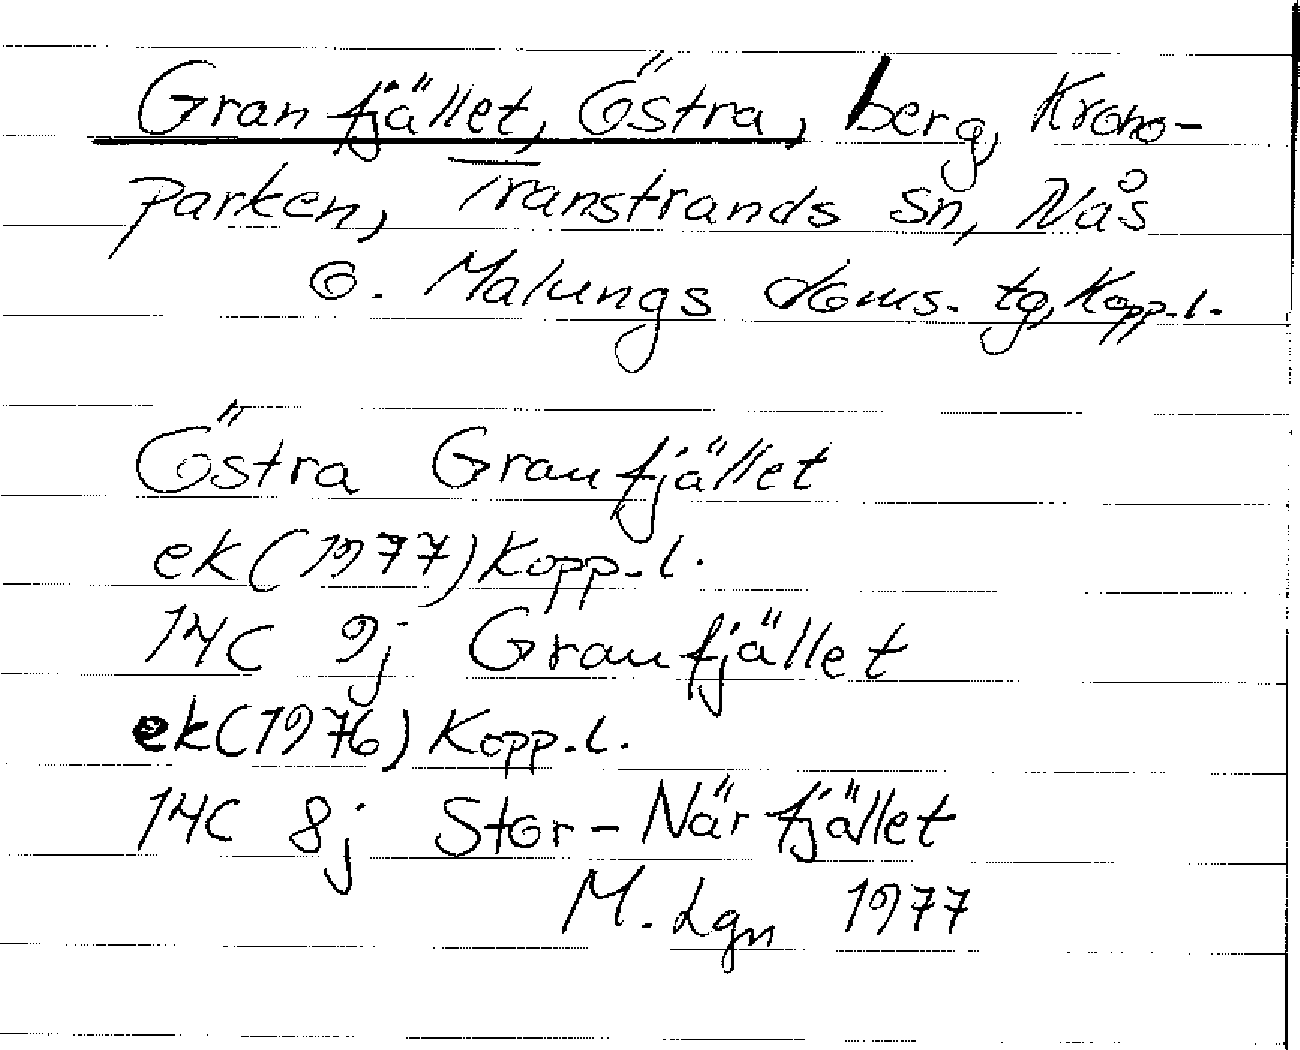 Granfjället, Östra, berg, Krono-
parken, Transtrands sn, Nås
o. Malungs doms. tg, Kopp. l.
Östra Granfjället
ek (1977) Kopp. l.
14C 9j Granfjället
ek (1976) Kopp. l.
14C 8j Stor-Närfjället
M. Lgn 1977